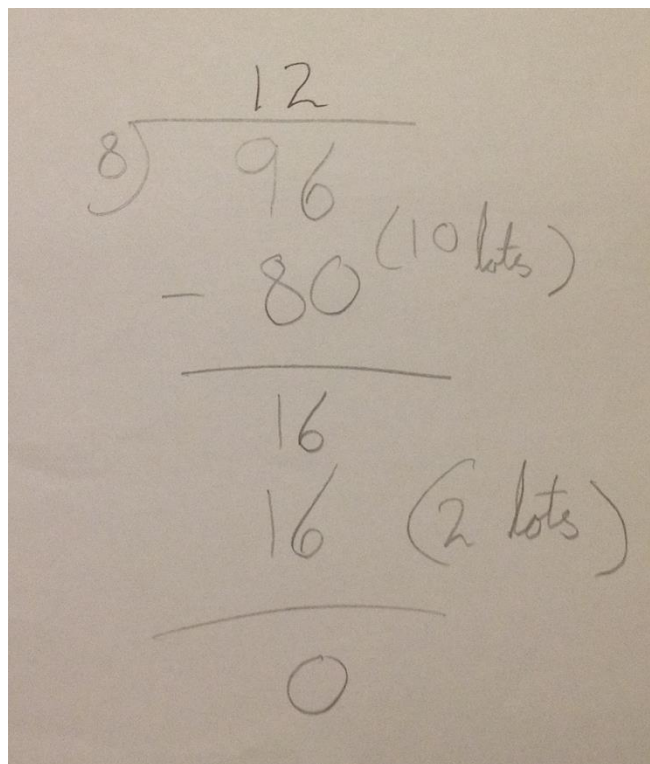 12
8) 96
- 80 (10 lots)
16
16 (2 lots)
0